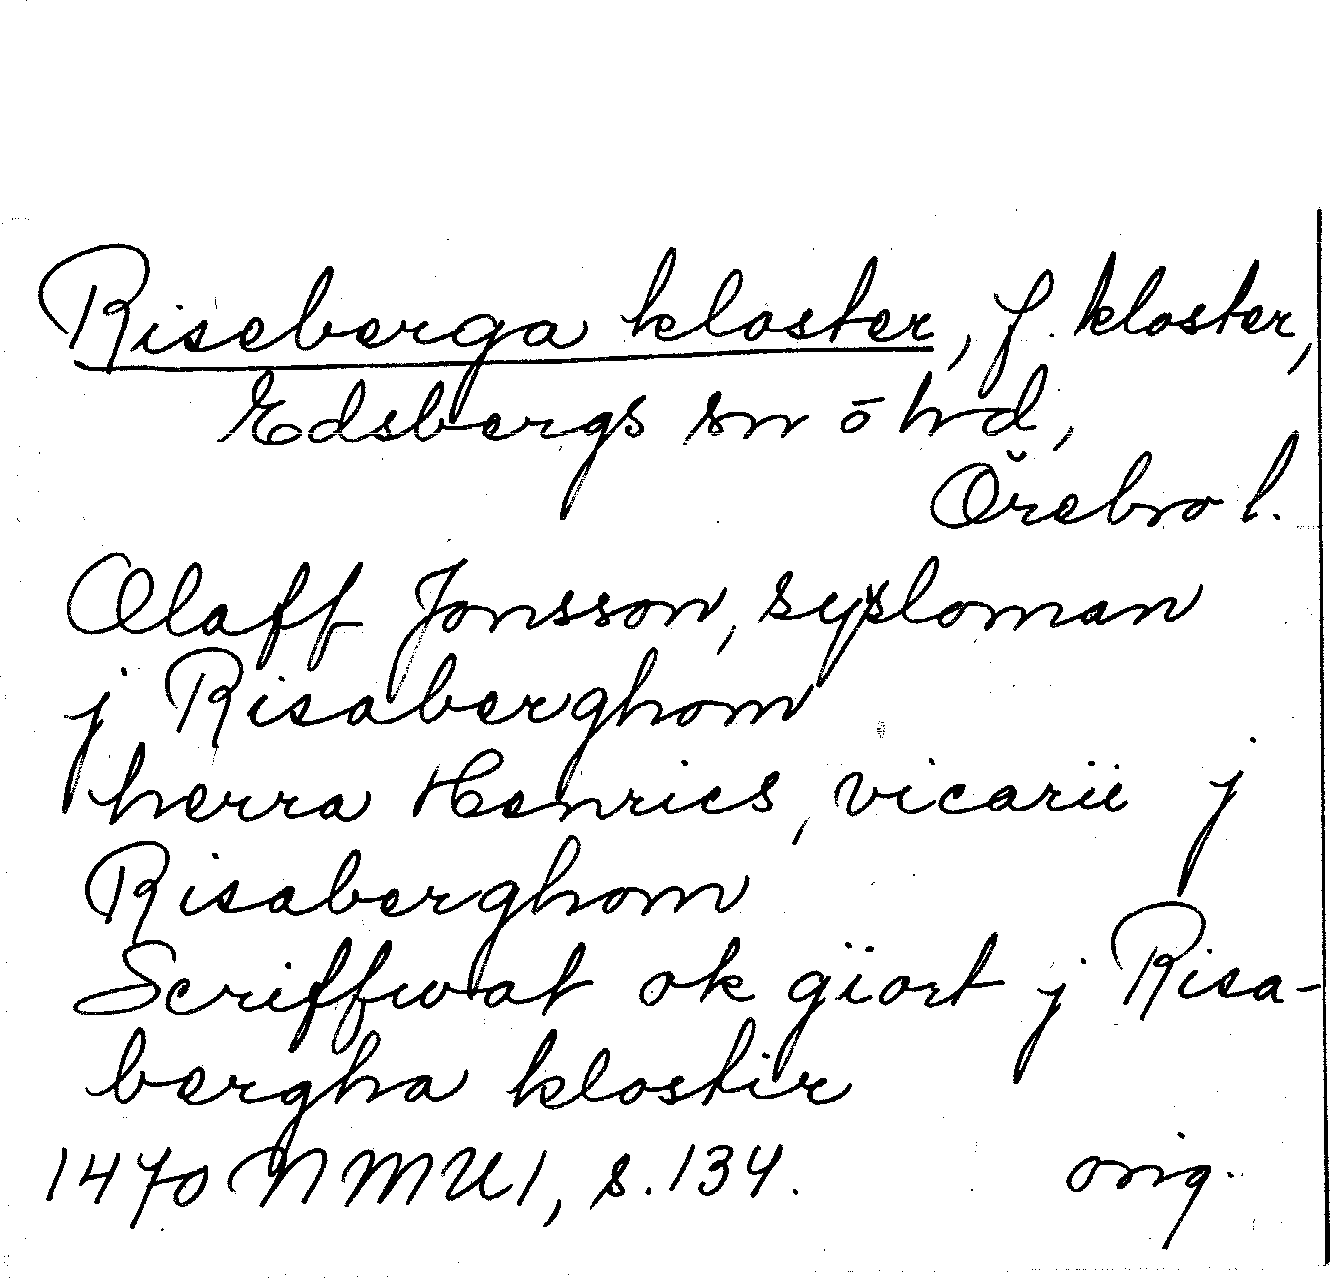 Riseberga kloster, f. kloster,
Edsbergs sn o hd,
Örebro l.
Olaff Jonsson, sysloman
j Risaberghom
herra Henrics, vicarii j
Risaberghom
Scriffwat ok giort j Risa-
bergha klostir
1470 NMU 1, s. 134. orig.